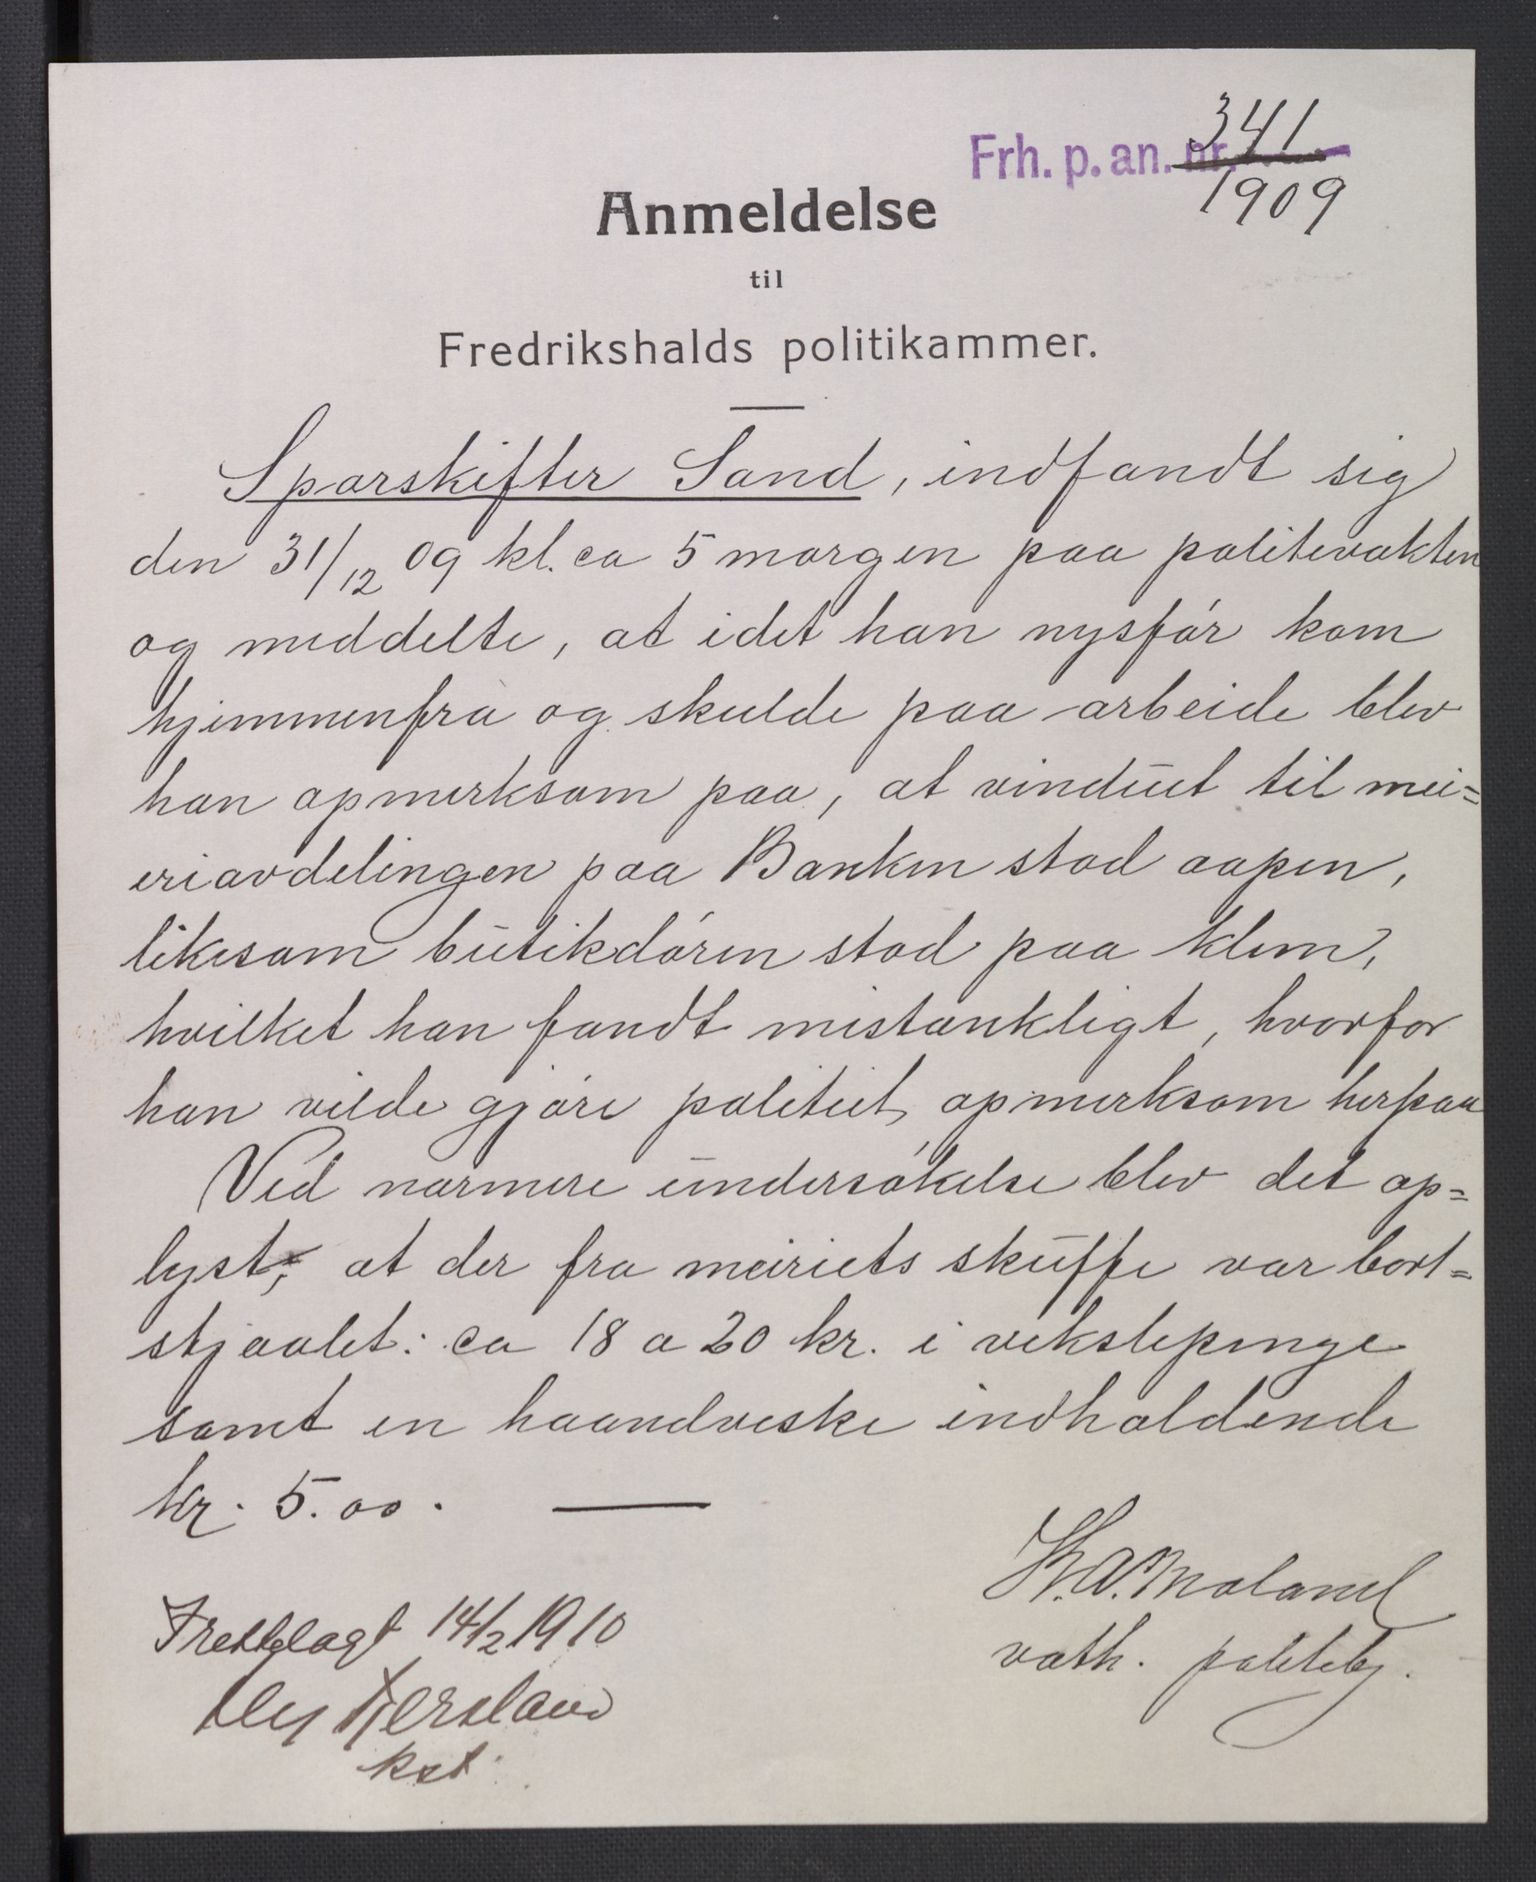 341
Frh. p. an. nr.
1909
Anmeldelse
til
Fredrikshalds politikammer.
Sporskifter Sand, indfandt sig
den 31/12 09 kl. ca 5 morgen paa politivakten
og meddelte, at idet han nysfór kom
hjemmenfra og skulde paa arbeide blev
han opmerksom paa, at vinduet til mei=
eriavdelingen paa Banken stod aapen,
likesom butikdóren stod paa klem,
hvilket han fandt mistænkligt, hvorfor
han vilde gjóre politiet opmerksom herpaa
Ved nærmere undersókelse blev det op=
lyst, at der fra meieriets skuffe var bort=
stjaalet: ca 18 a 20 kr. i vekslepenge
samt en haandveske indholdende
kr. 5.00.
K. A. Moland
vagth. politibtj.
Fremlagt 14/2 1910
kst